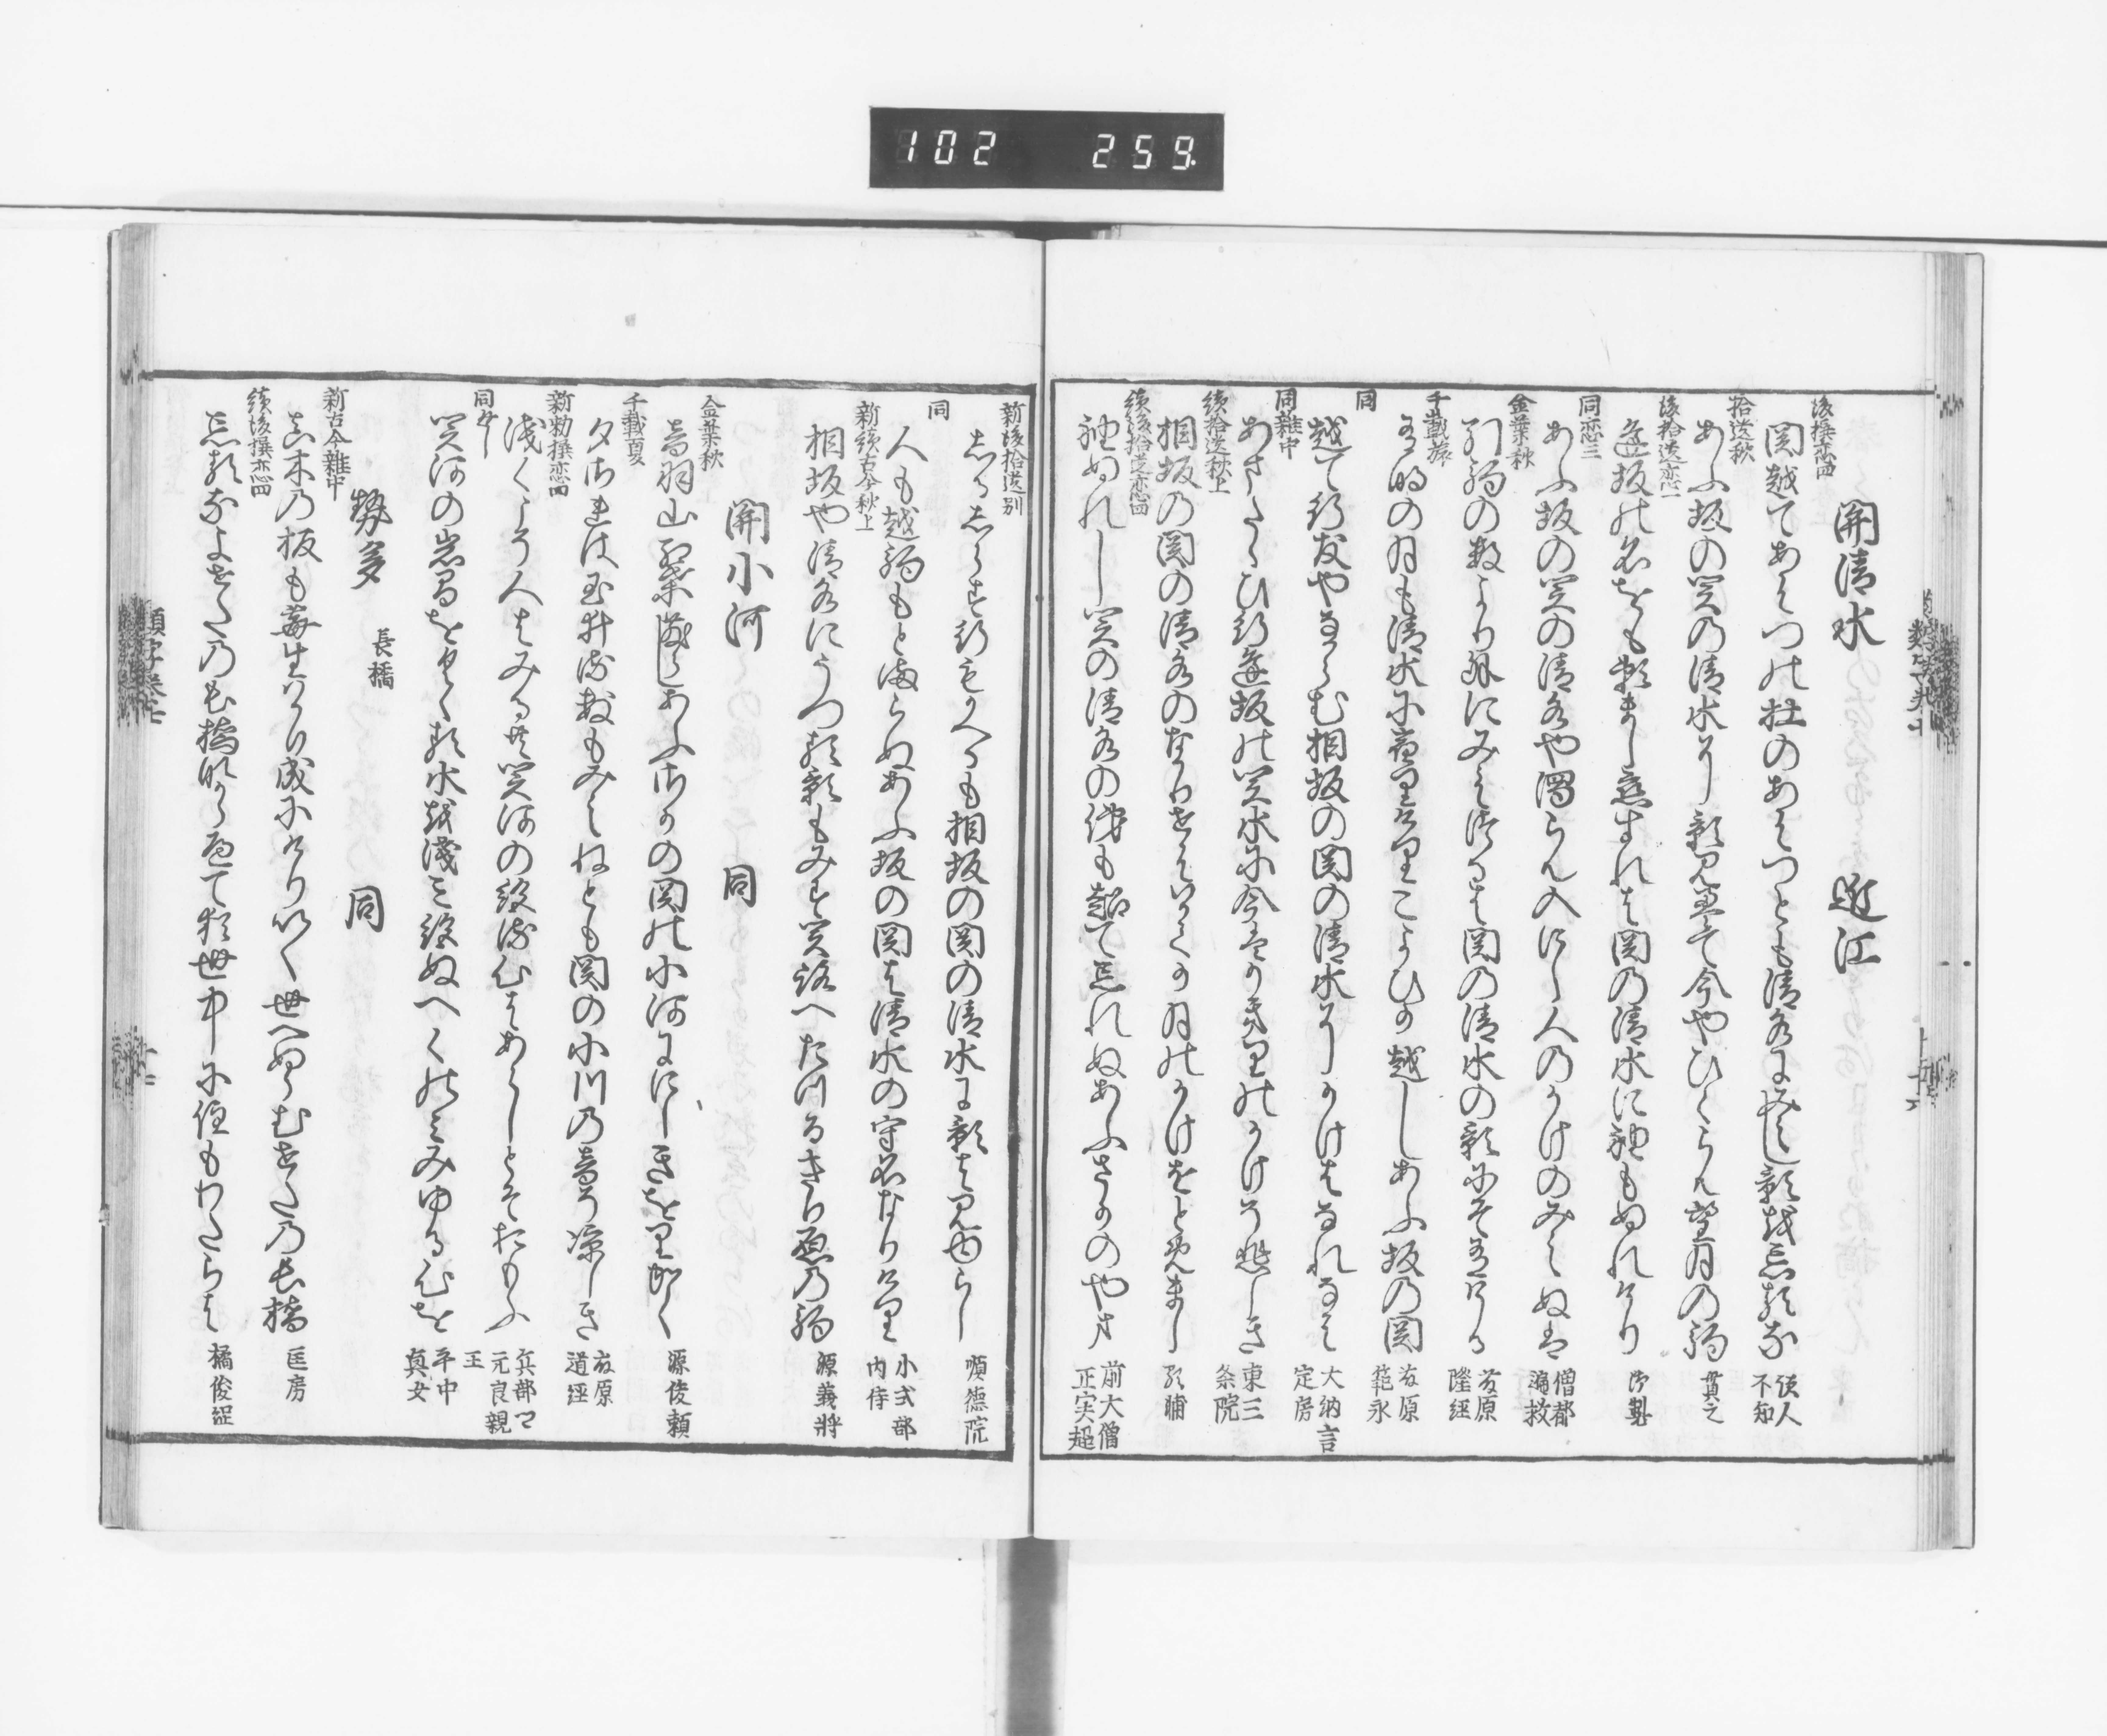 102 259.
関清水 近江
後撰恋四
関越てあはつの杜のあはつとも清水にみえし影を忘るな 読人不知
拾遺秋
あふ坂の関の清水に影見えて今やひくらん望月の駒 貫之
後拾遺恋一
逢坂の名をも頼まし恋すれは関の清水に袖もぬれけり 御製
同恋三
あふ坂の関の清水や濁らん入にし人のかけのみえぬは 僧都遍救
金葉秋
引駒の数より外にみえつるは関の清水の影にそ有ける 藤原隆経
千載旅
有明の月も清水に宿りけりこよひは越しあふ坂の関 藤原範永
同
越て行友やなからむ相坂の関の清水にかけはなれなは 大納言定房
同雑中
あまたたひ行逢坂の関水に今はかきりのかけそ悲しき 東三条院
続拾遺秋上
相坂の関の清水のなかりせはいかてか月のかけをとめまし 顕輔
続後拾遺恋四
袖ぬれし関の清水の俤も越て忘れぬあふさかのやま 前大僧正実超
新後拾遺別
しるしらす行もかへるも相坂の関の清水に影は見ゆらし 順徳院
同
人も越駒もとまらぬあふ坂の関は清水の守名なりけり 小弐部内侍
新続古今秋上
相坂や清水にうつる影もみす関路へたつるきり原の駒 源義将
関小河 同
金葉秋
音羽山紅葉散らしあふさかの関の小河ににしきをりかく 源俊頼
千載夏
夕されは玉ゐる数もみえねとも関の小川の音そ凉しき 藤原道経
新勅撰恋四
浅くこそ人はみるとも関河の絶る心はあらしとそおもふ 兵部卿元良親王
同
関河の岩間をくゝる水を浅み絶ぬへくのみみゆる心を 平中興女
勢多 長橋 同
新古今雑中
真木の板も苔生はかり成にけりいく世へぬらむせたの長橋 匡房
続後撰恋四
忘るなよせたの長橋なからへて猶世中に住もわたらは 橘俊綱
類字巻七